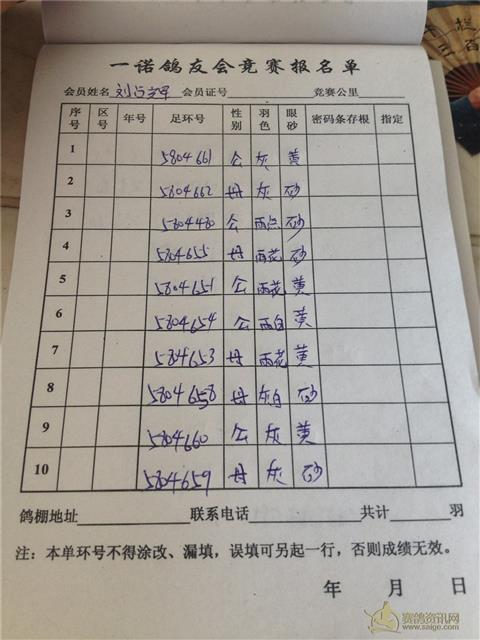 一诺鸽友会竞赛报名单
会员姓名 刘占军 会员证号 竞赛公里
序号 区号 年号 足环号 性别 羽色 眼砂 密码条存根 指定
1 5804661 公 灰 黄
2 5804662 母 灰 砂
3 5804480 公 雨点 砂
4 5804655 母 雨花 砂
5 5804651 公 雨花 黄
6 5804654 公 雨白 黄
7 584653 母 雨花 黄
8 5804658 母 灰白 砂
9 5804660 公 灰 黄
10 5804659 母 灰 砂
鸽棚地址 联系电话 共计 羽
注：本单环号不得涂改、漏填，误填可另起一行，否则成绩无效。
年 月 日
赛鸽资讯网
www.saige.com